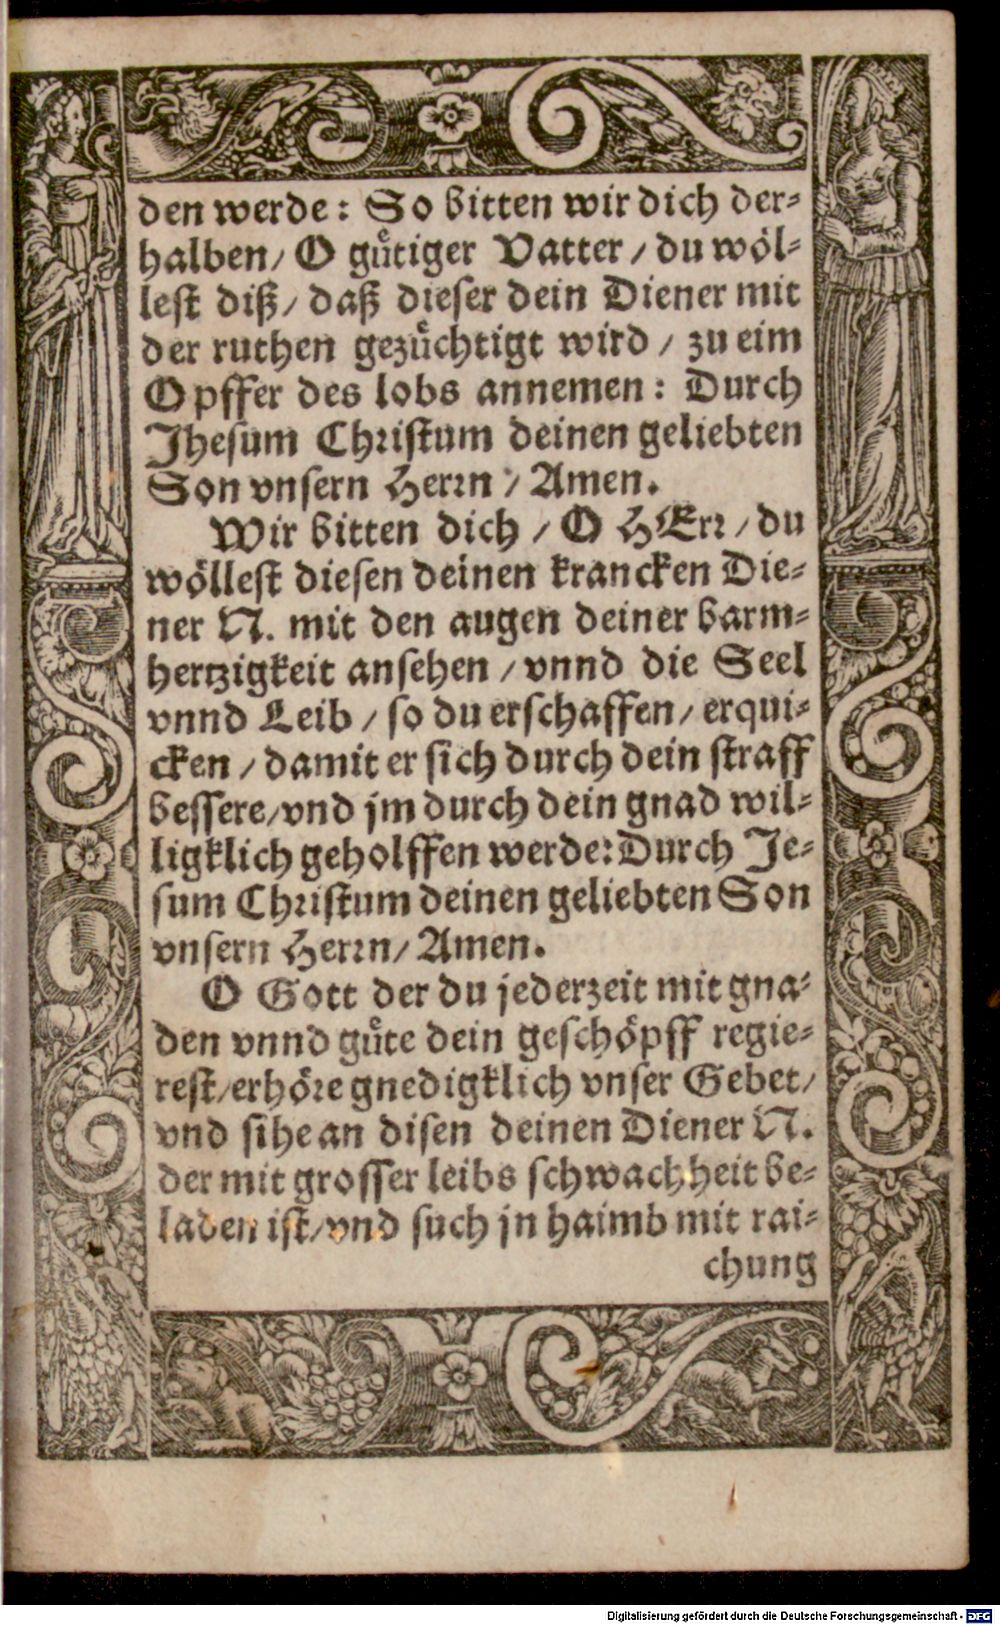 den werde: So bitten wir dich der-
halben/ O guͤtiger Vatter / du woͤl-
lest diß/ daß dieser dein Diener mit
der ruthen gezuͤchtigt wird / zu eim
Opffer des lobs annemen: Durch
Jhesum Christum deinen geliebten
Son vnsern Herrn / Amen.
Wir bitten dich / O HErr / du
woͤllest diesen deinen krancken Die-
ner N. mit den augen deiner barm-
hertzigkeit ansehen / vnnd die Seel
vnnd Leib / so du erschaffen / erqui-
cken / damit er sich durch dein straff
bessere/vnd jm durch dein gnad wil-
ligklich geholffen werde: Durch Je-
sum Christum deinen geliebten Son
vnsern Herrn/ Amen.
O Gott der du jederzeit mit gna-
den vnnd guͤte dein geschoͤpff regie-
rest/erhoͤre gnedigklich vnser Gebet/
vnd sihe an disen deinen Diener N.
der mit grosser leibs schwachheit be-
laden ist/vnd such jn haimb mit rai-
chung
Digitalisierung gefördert durch die Deutsche Forschungsgemeinschaft - DFG